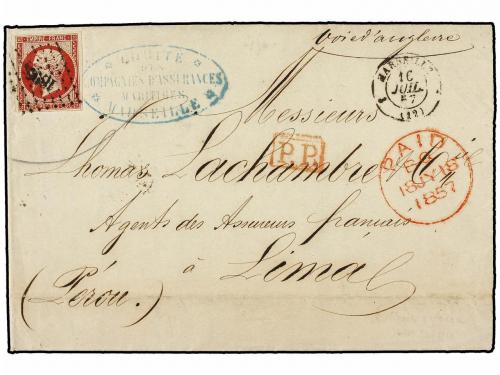 EMPIRE FRANC
COMITÉ
DES
COMPAGNIES D'ASSURANCES
MARITIMES
MARSEILLE
Voie d'angleterre
MARSEILLE
16
JUIL
57
(12)
Messieurs
P.P.
PAID
18 JY 18
1857
Thomas Lachambre & Cie
Agents des Assureurs français
à Lima
(Pérou.)